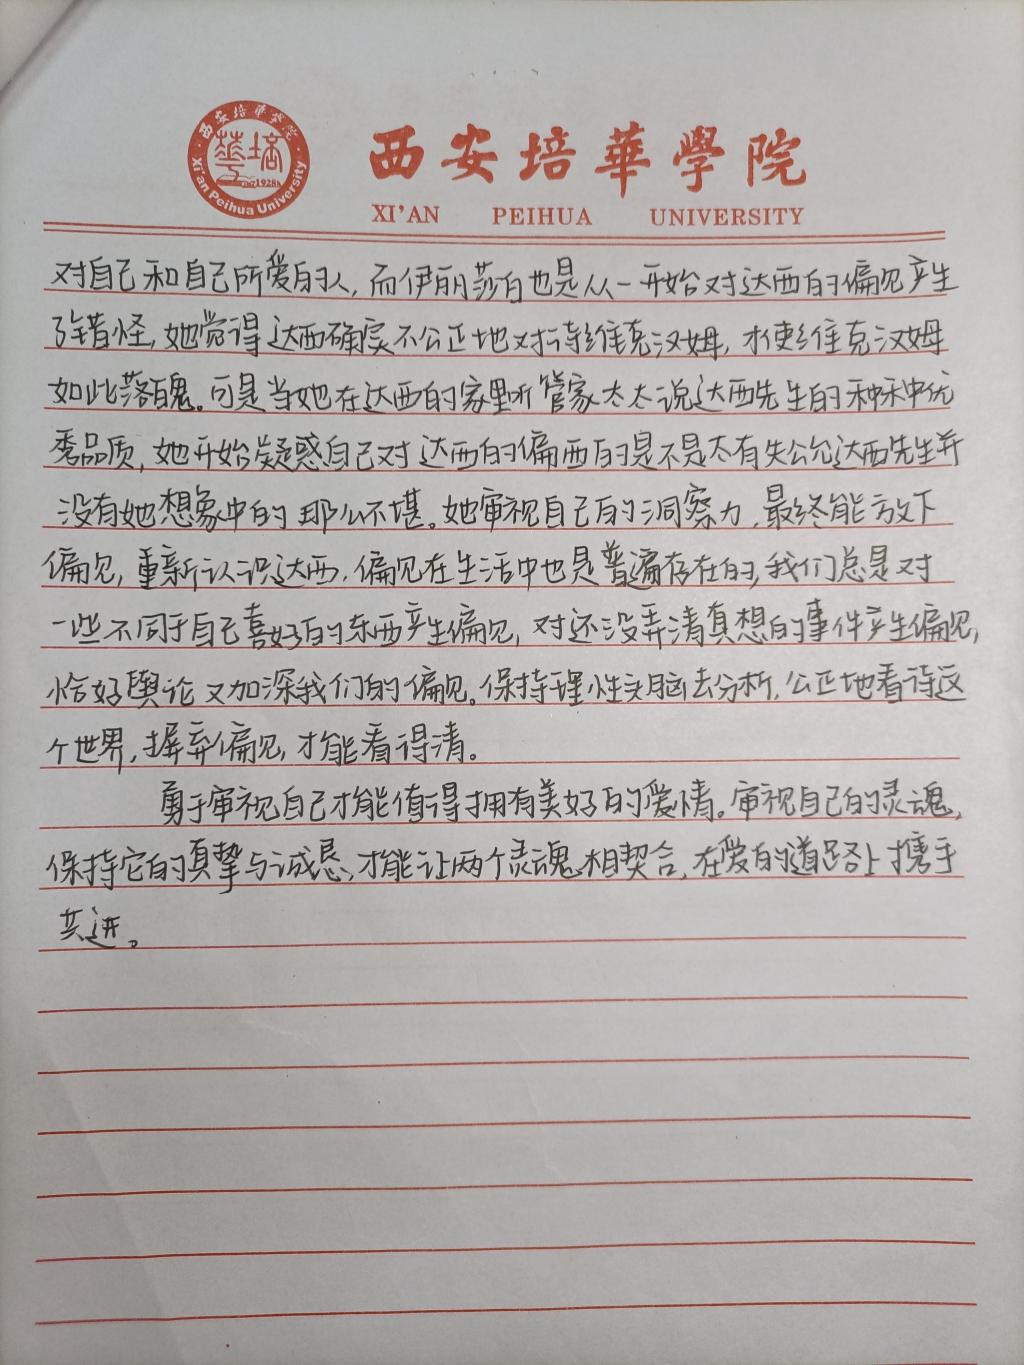 西安培華學院
XI'AN PEIHUA UNIVERSITY
西安培华学院
华培
1928
Xi'an Peihua University
对自己和自己所爱的人,而伊丽莎白也是从一开始对达西的偏见产生
了错怪,她觉得达西确实不公正地对待维克汉姆,才使维克汉姆
如此落魄。可是当她在达西的家里听管家太太说达西先生的种种优
秀品质,她开始疑惑自己对达西的偏西的是不是太有失公允达西先生并
没有她想象中的那么不堪。她审视自己的洞察力,最终能放下
偏见,重新认识达西,偏见在生活中也是普遍存在的,我们总是对
一些不同于自己喜好的东西产生偏见,对还没弄清真想的事件产生偏见,
恰好舆论又加深我们的偏见。保持理性头脑去分析,公正地看待这
个世界,摒弃偏见,才能看得清。
勇于审视自己才能值得拥有美好的爱情。审视自己的灵魂,
保持它的真挚与诚恳,才能让两个灵魂相契合,在爱的道路上携手
共进。